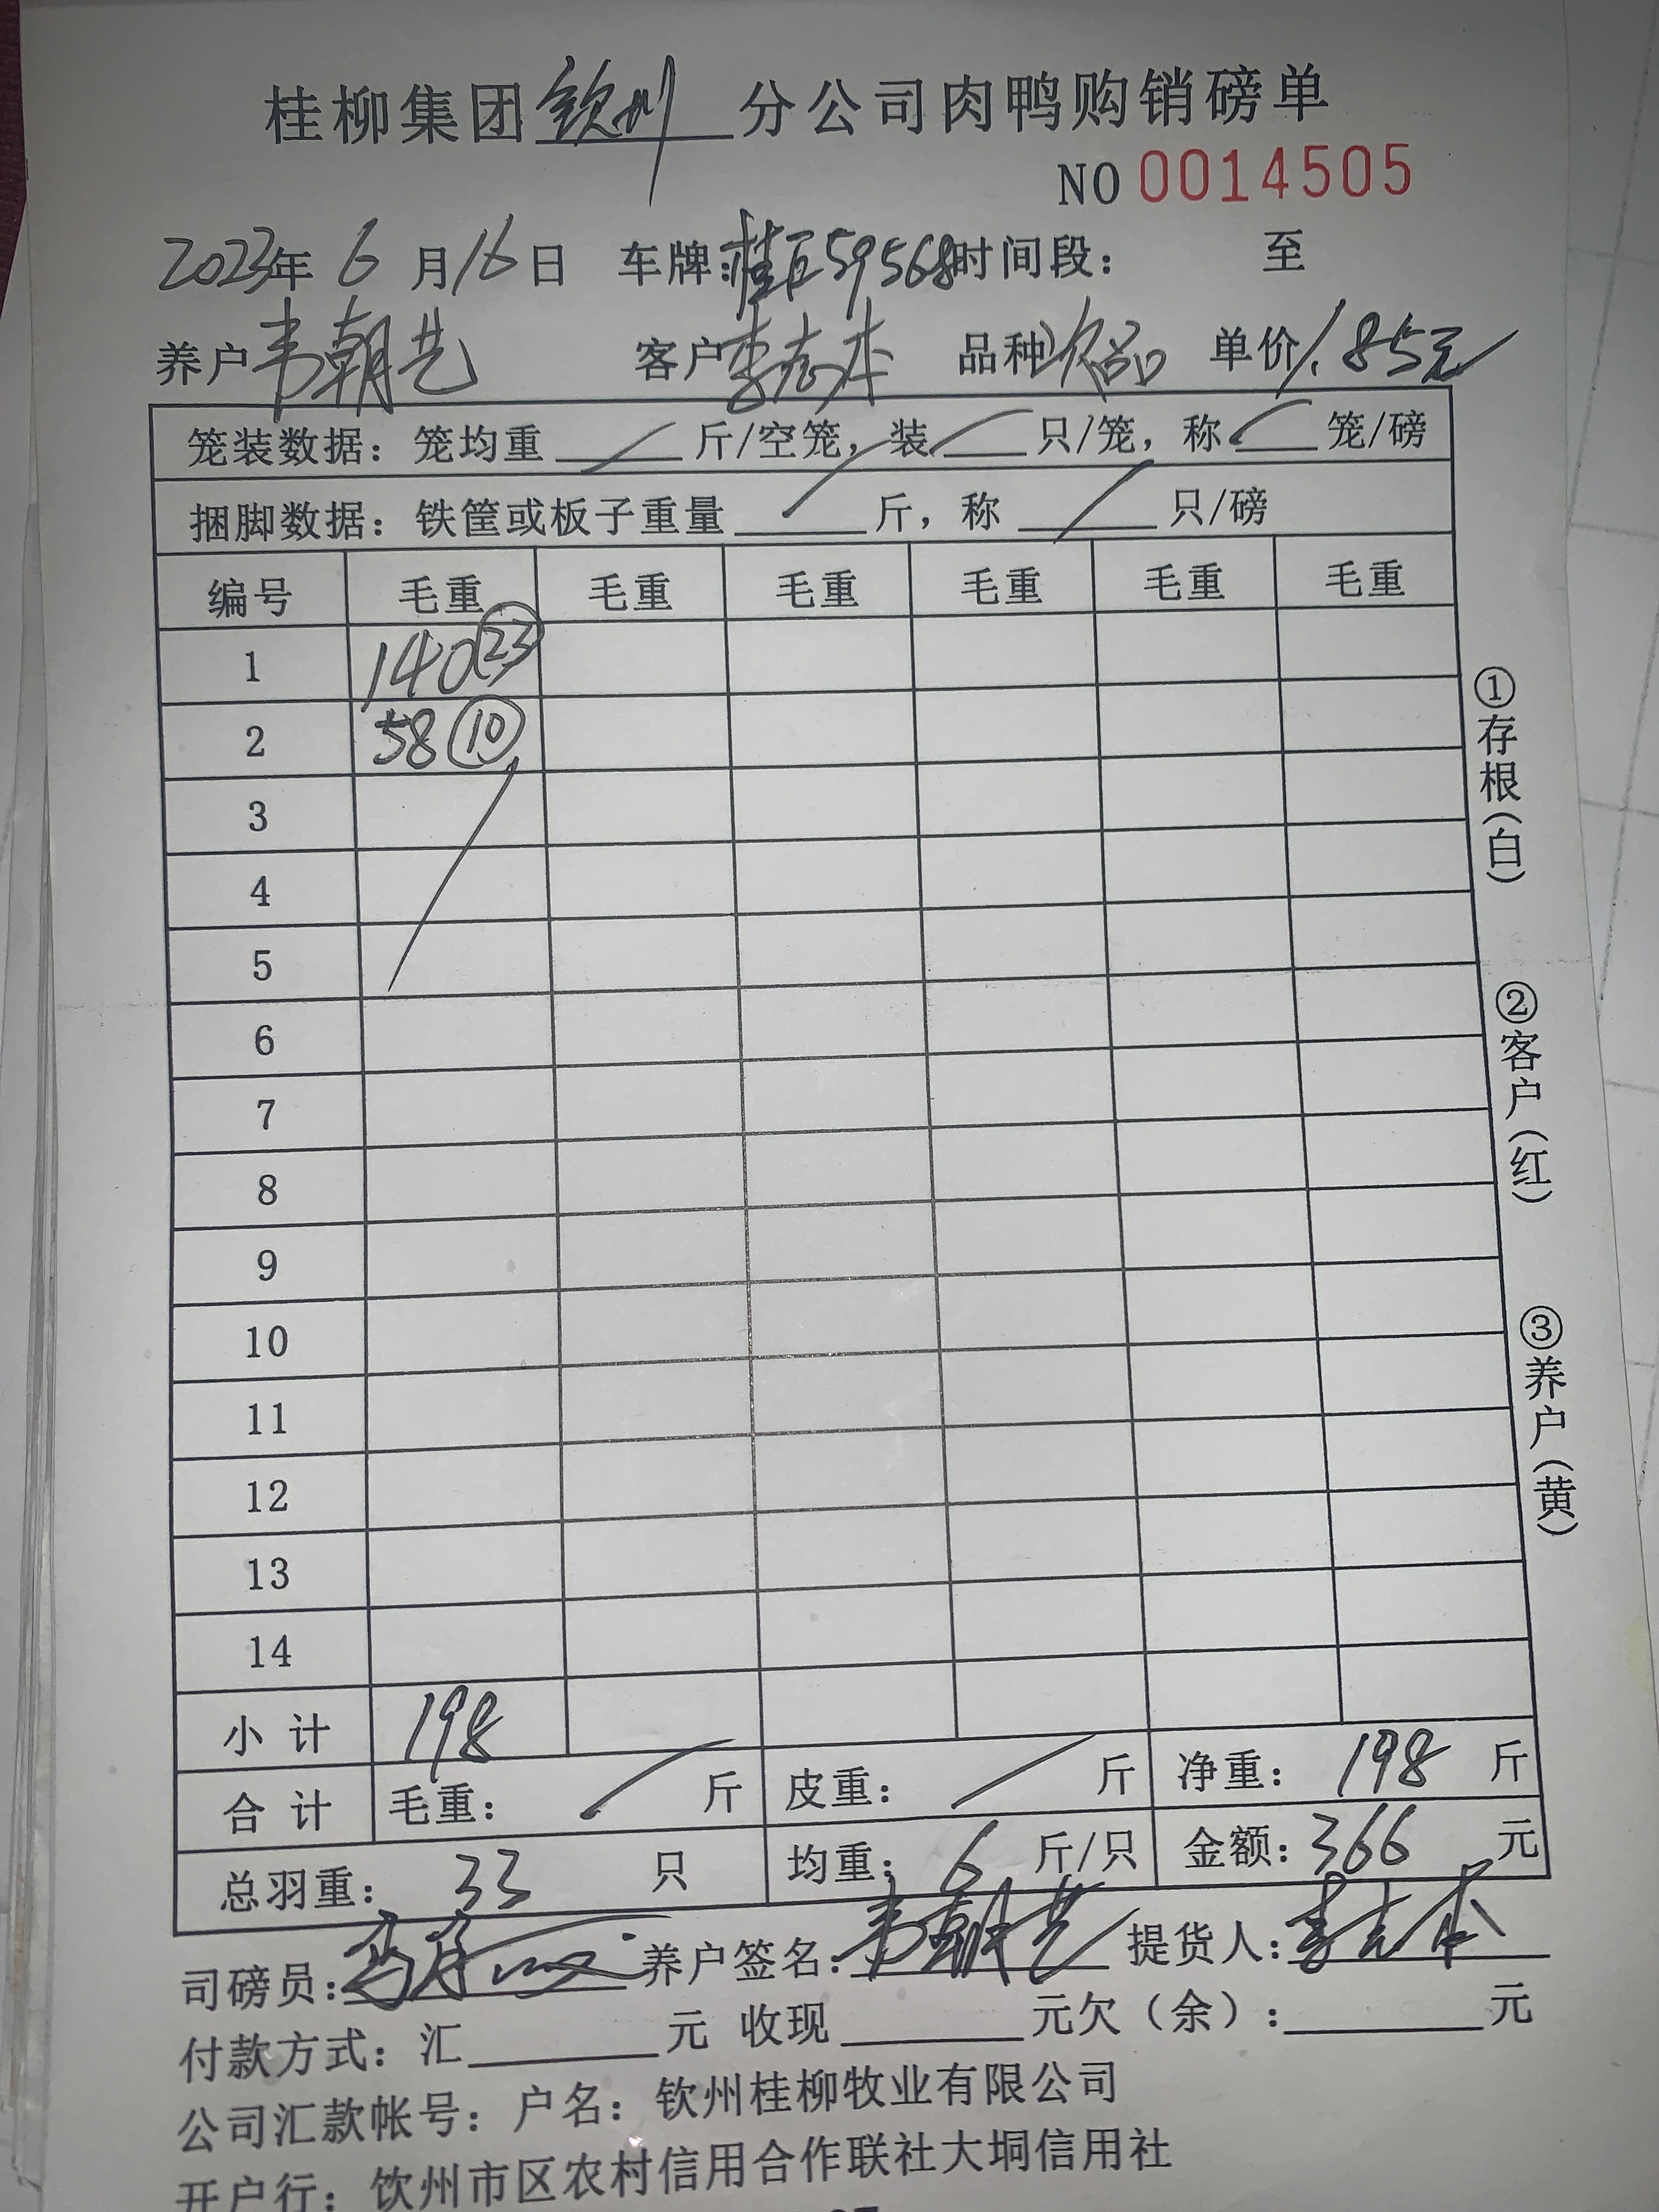 桂柳集团钦州分公司肉鸭购销磅单
NO 0014505
2023年 6 月 16 日 车牌: 桂 59568 时间段: 至
养户 韦朝艺 客户 李志本 品种 次品 单价 1.85元
笼装数据: 笼均重 斤/空笼, 装 只/笼, 称 笼/磅
捆脚数据: 铁筐或板子重量 斤, 称 只/磅
编号 毛重 毛重 毛重 毛重 毛重 毛重
1 140 ㉓
2 58 ⑩
3
4
5
6
7
8
9
10
11
12
13
14
小 计 198
合 计 毛重: 斤 皮重: 斤 净重: 198 斤
总羽重: 33 只 均重: 6 斤/只 金额: 366 元
司磅员: 养户签名: 韦朝艺 提货人: 李志本
付款方式: 汇 元 收现 元欠（余）: 元
公司汇款帐号: 户名: 钦州桂柳牧业有限公司
开户行: 钦州市区农村信用合作联社大垌信用社
①存根(白)
②客户(红)
③养户(黄)